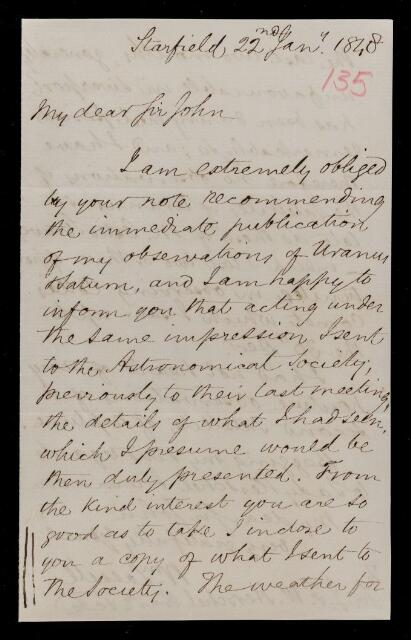 Starfield 22nd of Jany. 1848
135
My dear Sir John
I am extremely obliged
by your note recommending
the immediate publication
of my observations of Uranus
& Saturn, and I am happy to
inform you that acting under
the same impression I sent
to the Astronomical Society,
previously to their last meeting,
the details of what I had seen,
which I presume would be
then duly presented. From
the kind interest you are so
good as to take I inclose to
you a copy of what I sent to
the Society. The weather for